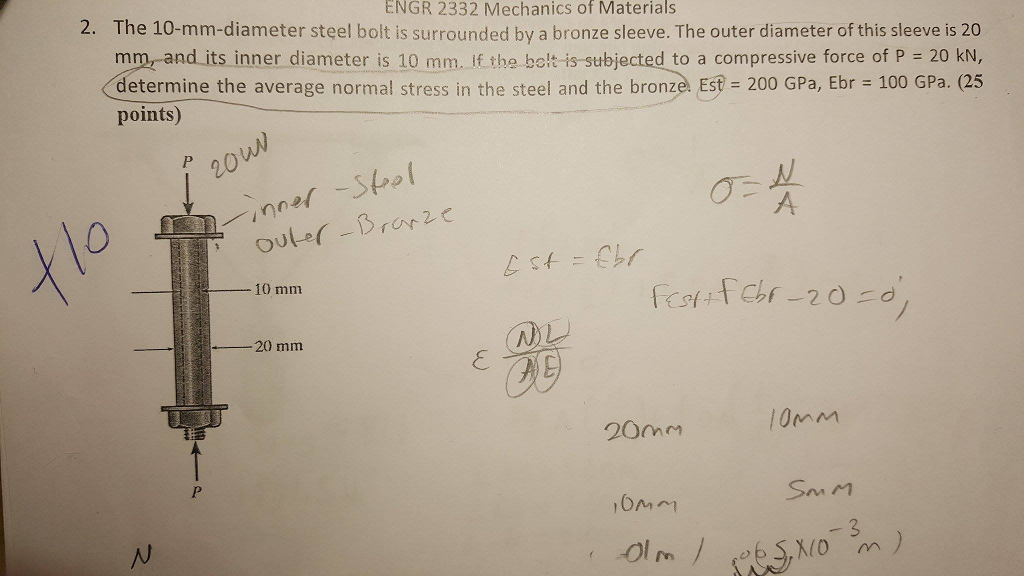 ENGR 2332 Mechanics of Materials
2. The 10-mm-diameter steel bolt is surrounded by a bronze sleeve. The outer diameter of this sleeve is 20
mm, and its inner diameter is 10 mm. If the bolt is subjected to a compressive force of P = 20 kN,
determine the average normal stress in the steel and the bronze. Est = 200 GPa, Ebr = 100 GPa. (25
points)
P
20
inner - Steel
outer - Bronze
σ = N/A
+10
Est = Ebr
FEst + FEbr - 20 = 0
10 mm
20 mm
ε NL/AE
20mm 10mm
P
10mm 5mm
N
.01m 5x10⁻³ m